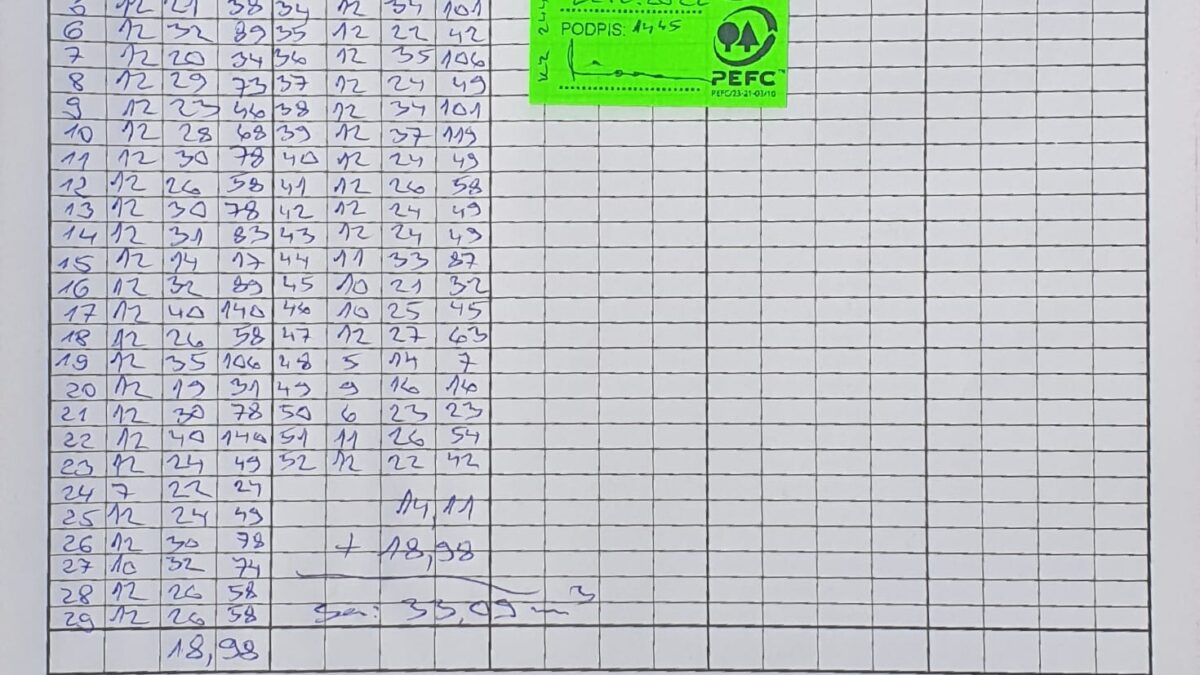 5 12 21 38 34 12 34 101
6 12 32 89 35 12 22 42
7 12 20 34 36 12 35 106
8 12 29 73 37 12 24 49
9 12 23 46 38 12 34 101
10 12 28 68 39 12 37 119
11 12 30 78 40 12 24 49
12 12 26 58 41 12 26 58
13 12 30 78 42 12 24 49
14 12 31 83 43 12 24 49
15 12 14 17 44 11 33 87
16 12 32 89 45 10 21 32
17 12 40 140 46 10 25 45
18 12 26 58 47 12 27 63
19 12 35 106 48 5 14 7
20 12 19 31 49 9 16 16
21 12 30 78 50 6 23 23
22 12 40 140 51 11 26 54
23 12 24 49 52 12 22 42
24 7 22 24
25 12 24 49 14,11
26 12 30 78 + 18,98
27 10 32 74
28 12 26 58
29 12 26 58 Sa: 33,09 m³
18,98
PODPIS: 1445
PEFC™
PEFC/23-21-03/10